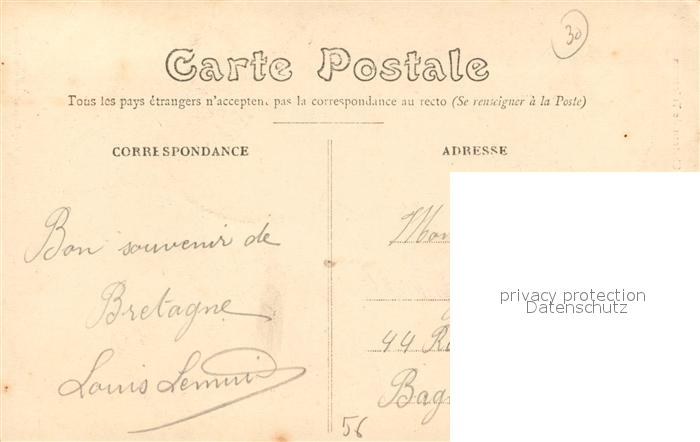 30
Carte Postale
Tous les pays étrangers n'acceptent pas la correspondance au recto (Se renseigner à la Poste)
CORRESPONDANCE
ADRESSE
Bon souvenir de
Bretagne
Louis
44
56
privacy protection
Datenschutz